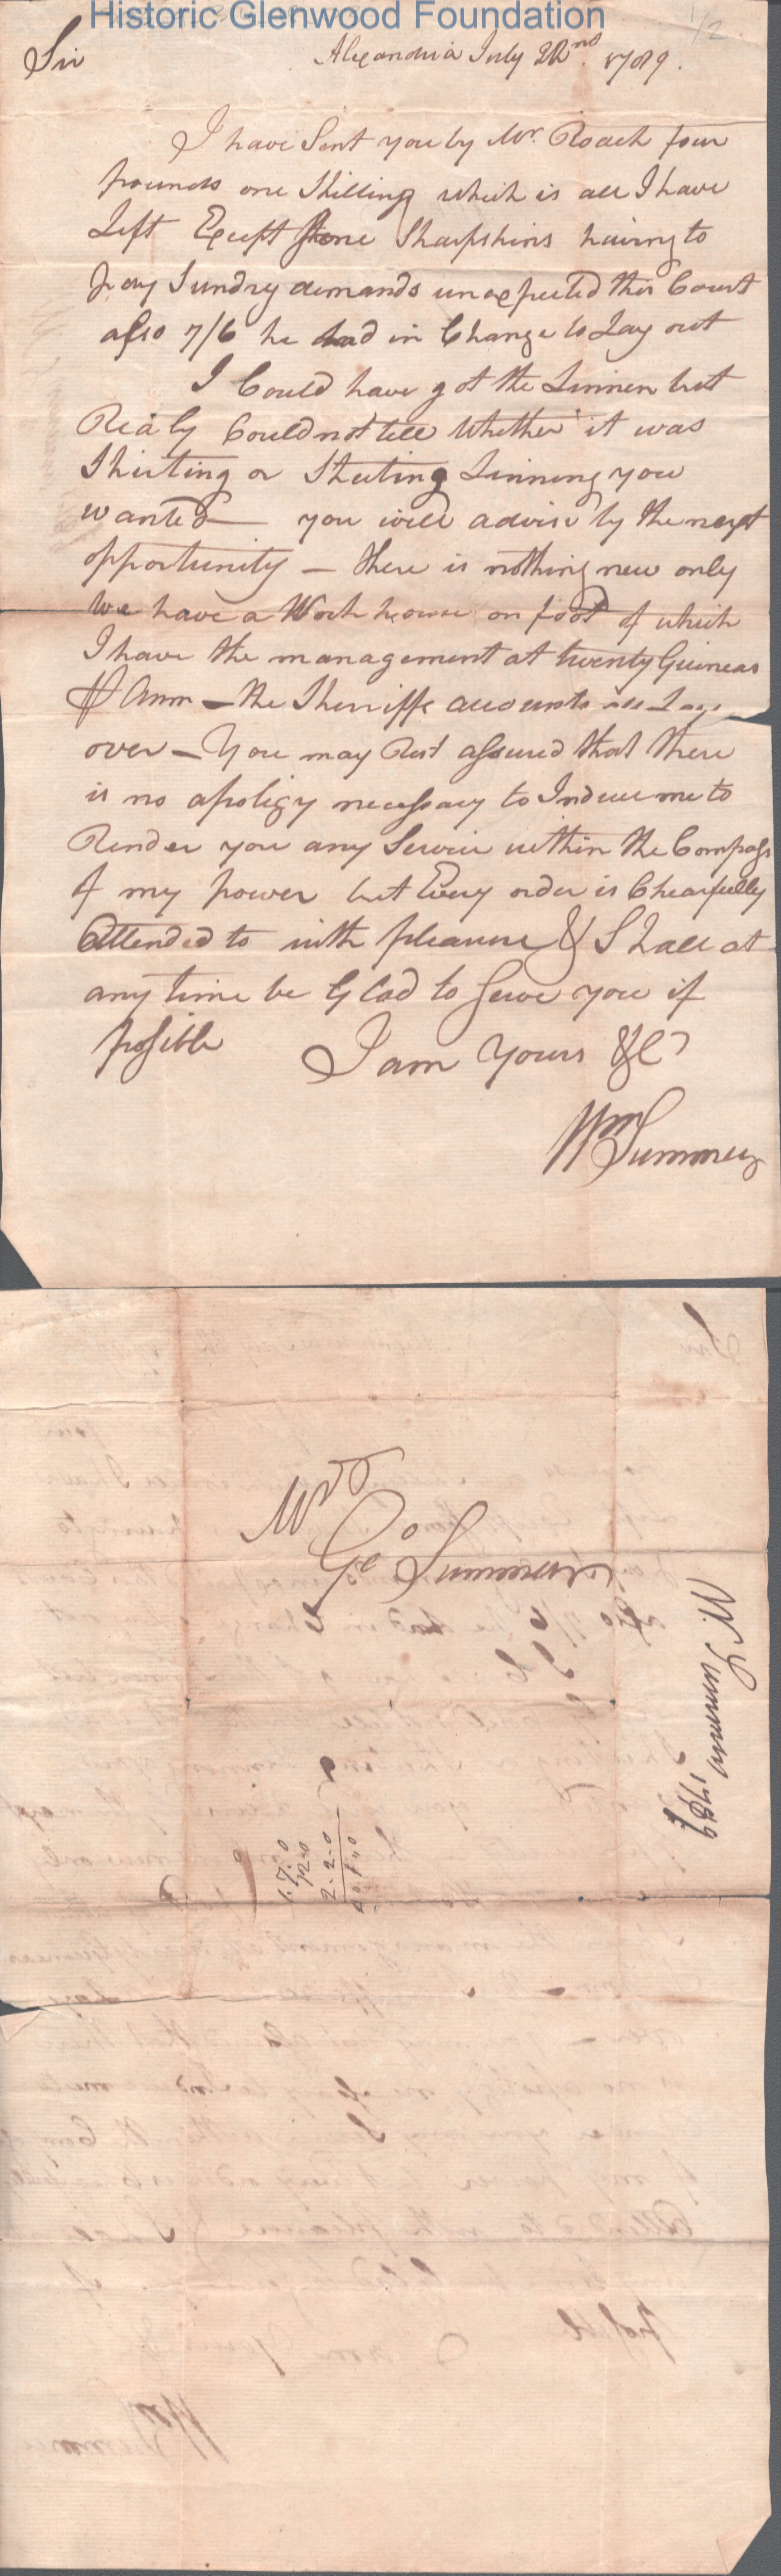 Historic Glenwood Foundation
1/2
Sir
Alexandria July 22nd 1789.
I have Sent you by Mr. Roach four
pounds one Shilling which is all I have
Left Except Some Sharpshins having to
pay Sundry demands unexpected this Court
also 7/6 he had in Change to Lay out
I Could have got the Linnen but
Realy Could not tell Whether it was
Shirting or Sheeting Linning you
wanted — you will advise by the next
opportunity — there is nothing new only
we have a Workhouse on foot of which
I have the management at twenty Guineas
⅌ Ann — the Sherriffs accounts all Lays
over — You may Rest assured that there
is no apoligy necessary to Induce me to
Render you any Service within the Compass
of my power but Every order is Chearfully
Attended to with pleasure & Shall at
any time be Glad to Serve you if
possible I am Yours &c
Wm Summers
Geo Summers
Wm Summers 1789
1.7.0
12.0
2.2.0